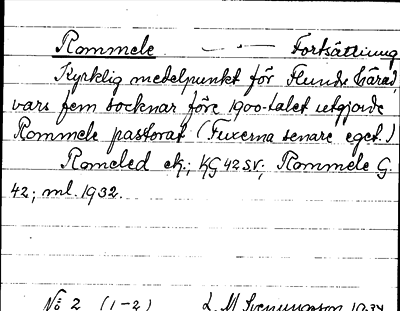 Rommele — · — Fortsättning
Kyrklig medelpunkt för Flundre härad,
vars fem socknar före 1900-talet utgjorde
Rommele pastorat (Fuxerna senare eget.)
Romeled ek.; KG 42 SV; Rommele G.
42; ml. 1932.
No 2 (1-2) L. M. Svenungsson 10.34